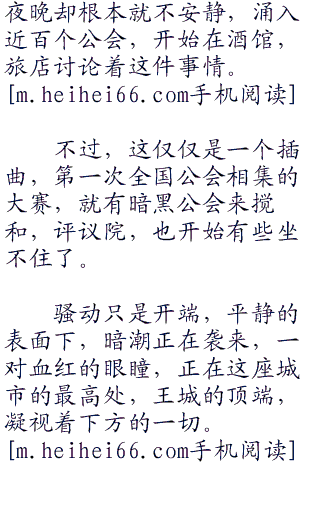 夜晚却根本就不安静，涌入
近百个公会，开始在酒馆，
旅店讨论着这件事情。
[m.heihei66.com手机阅读]
不过，这仅仅是一个插
曲，第一次全国公会相集的
大赛，就有暗黑公会来搅
和，评议院，也开始有些坐
不住了。
骚动只是开端，平静的
表面下，暗潮正在袭来，一
对血红的眼瞳，正在这座城
市的最高处，王城的顶端，
凝视着下方的一切。
[m.heihei66.com手机阅读]